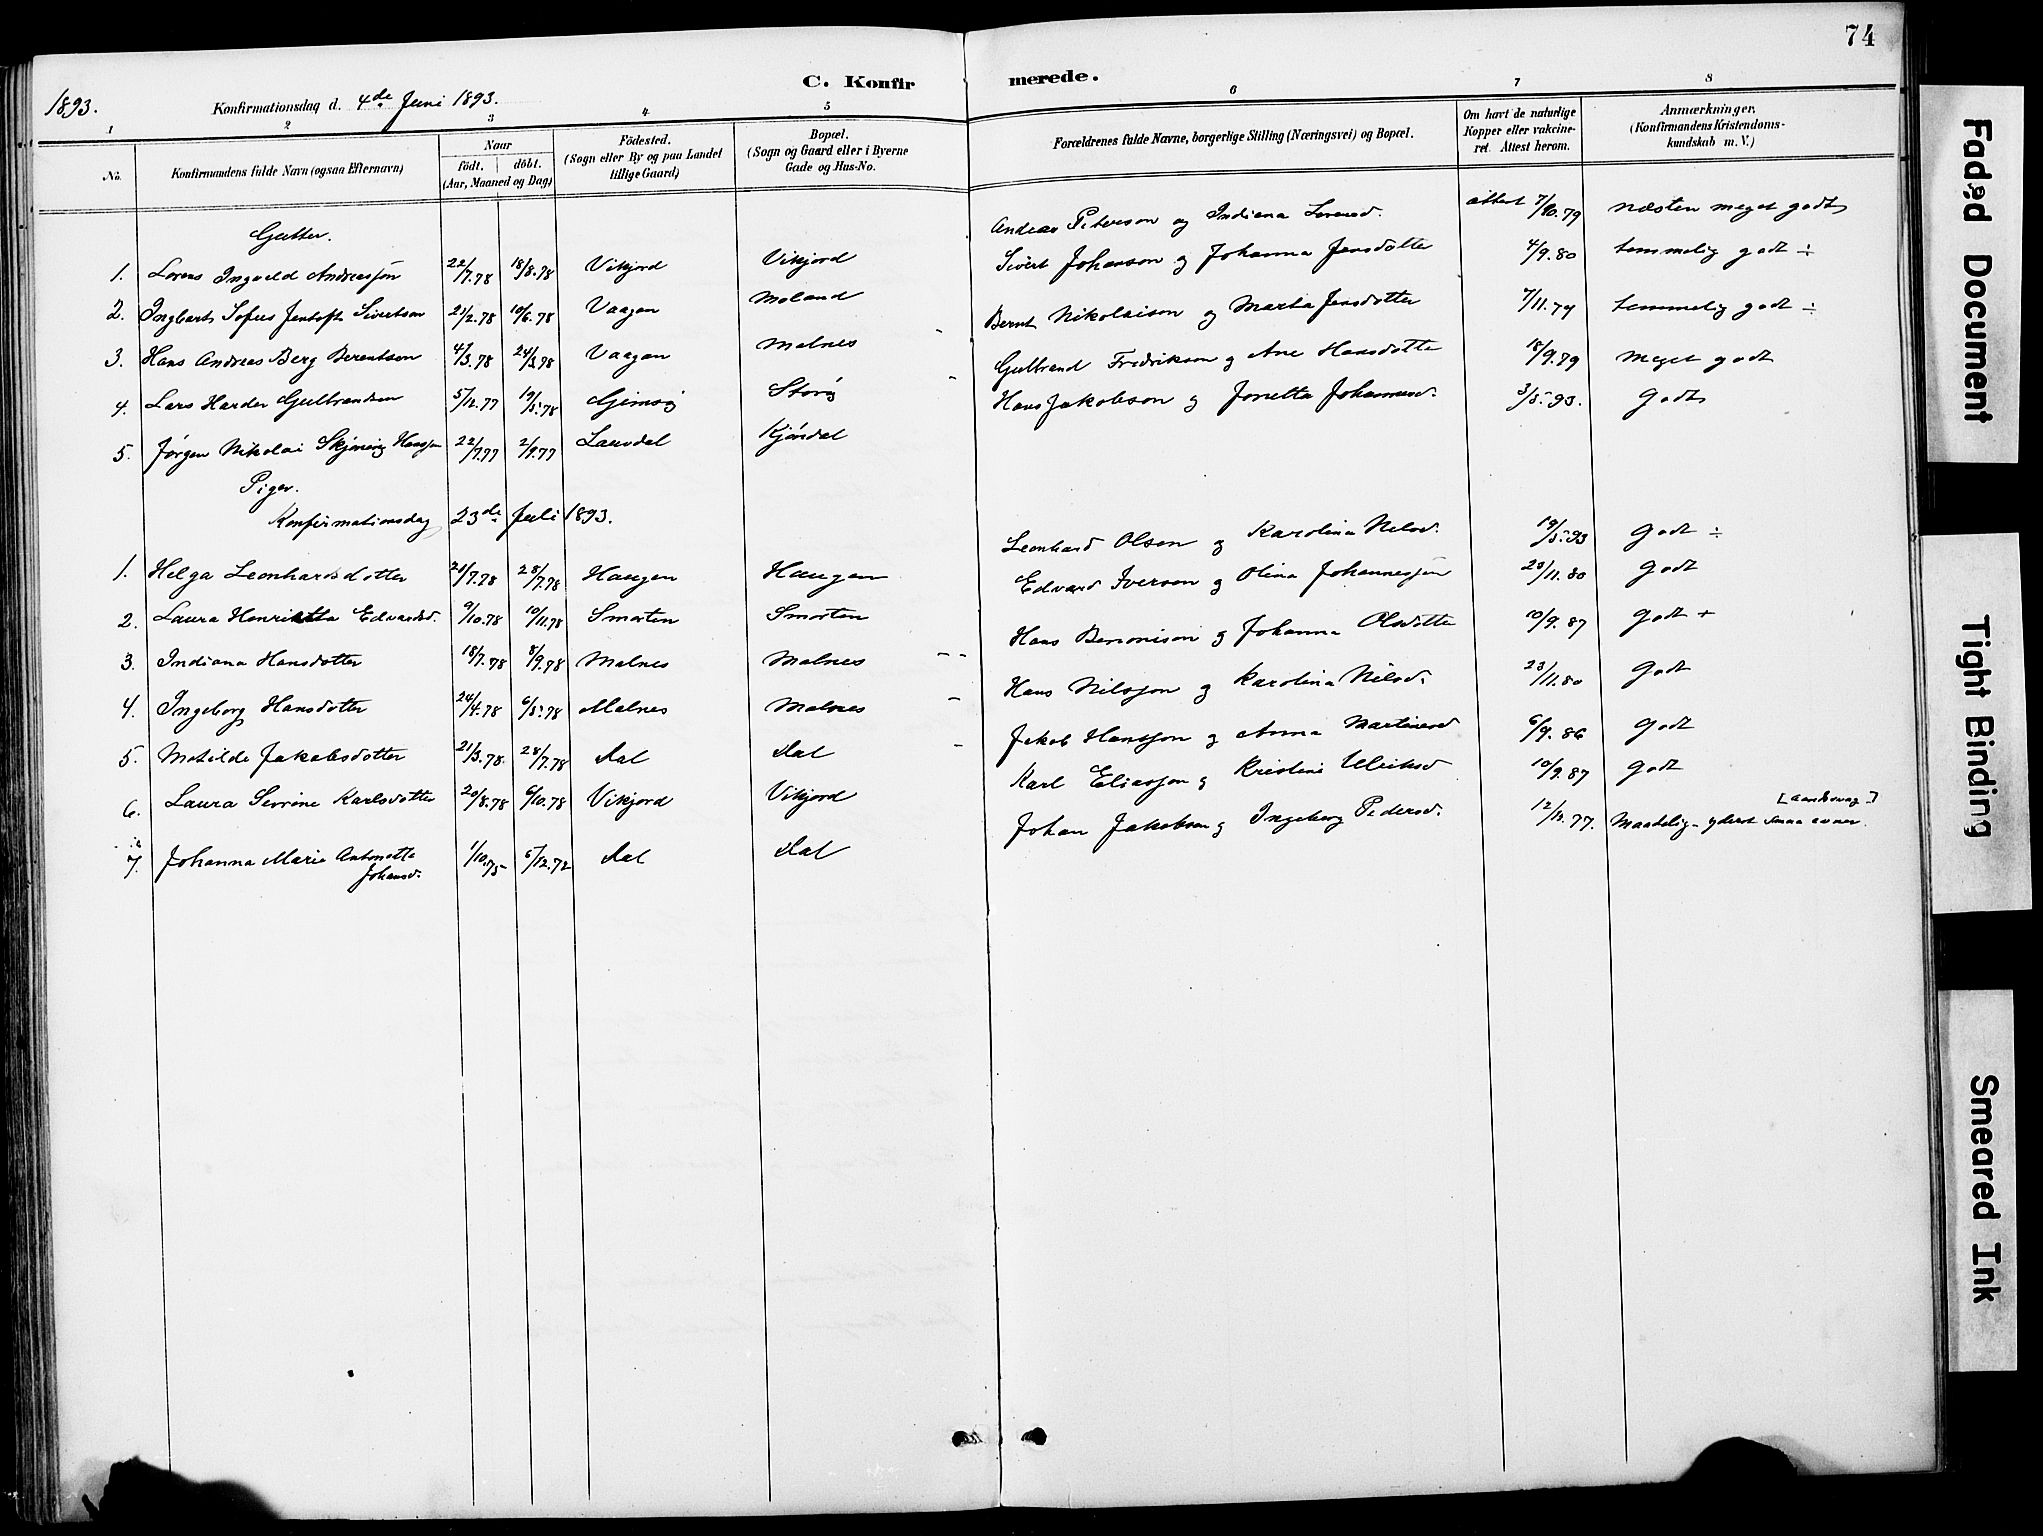 74
C. Konfirmerede.
1893. Konfirmationsdag d. 4de Juni 1893.
1 2 3 4 5 6 7 8
No. Konfirmandens fulde Navn (ogsaa Efternavn) Naar født. døbt. (Aar, Maaned og Dag) Födested. (Sogn eller By og paa Landet tillige Gaard) Bopæl. (Sogn og Gaard eller i Byerne Gade og Hus-No. Forældrenes fulde Navne, borgerlige Stilling (Næringsvei) og Bopæl. Om havt de naturlige Kopper eller vakcineret. Attest herom. Anmærkninger. (Konfirmandens Kristendomskundskab m. V.)
Gutter.
1. Lorens Ingvald Andreassøn 22/7.78 18/8.78 Vikjord Vikjord Andreas Peterson og Indiana attest 7/10.79 næsten meget godt
2. Ingbart Sofus Jentoft Sivertson 21/2.78 10/6.78 Vaagan Moland Sivert Johanson og Johanna Jensdotter 4/9.80 temmelig godt ÷
3. Hans Andreas Berg Berentson 4/3.78 24/3.78 Vaagan Malnes Bernt Nikolaison og Marta Jensdotter 7/11.79 temmelig godt ÷
4. Lars Harder Gulbrandson 5/12.77 19/5.78 Gimsø Storø Gulbrand Fredrikson og Ane Hansdotter 18/9.79 meget godt
5. Jørgen Nikolai Hansson 22/7.77 2/9.77 Laundal Kjøndal Hans Jakobson og Jonetta Johannesd. 3/5.93. Godt
Piger.
Konfirmationsdag 23de Juli 1893.
1. Helga Leonhardsdotter 21/7.78 28/7.78 Haugen Haugen Leonhard Olson og Karolina Nilsd. 19/5.93 Godt ÷
2. Laura Henrietta Edvardsd. 9/10.78 10/11.78 Smorten Smorten Edvard Iverson og Olina Johannessøn 29/11.80 Godt
3. Indiana Hansdotter 18/7.78 8/9.78 Malnes Malnes Hans Benonison og Johanna Olsdotter 10/9.87 Godt +
4. Ingeborg Hansdotter 24/4.78 6/5.78 Malnes Malnes Hans Nilsson og Karolina Nilsd. 23/11.80 Godt
5. Matilde Jakobsdotter 21/3.78. 28/7.78 Dal Dal Jakob Hansson og Anna Martinsd 6/9.86 Godt
6. Laura Sevrine Karlsdotter 20/8.78 6/10.78 Vikjord Vikjord Karl Eliasson og Kristine Ulriksd 10/9.87 Godt
7. Johanna Marie Antonette Johansd. 1/10.75 6/12.72 Dal Dal Johan Jakobson og Ingeborg Pedersd. 12/12.77. Maadelig - yderst svage evner [aandssvag]
Faded Document
Tight Binding
Smeared Ink